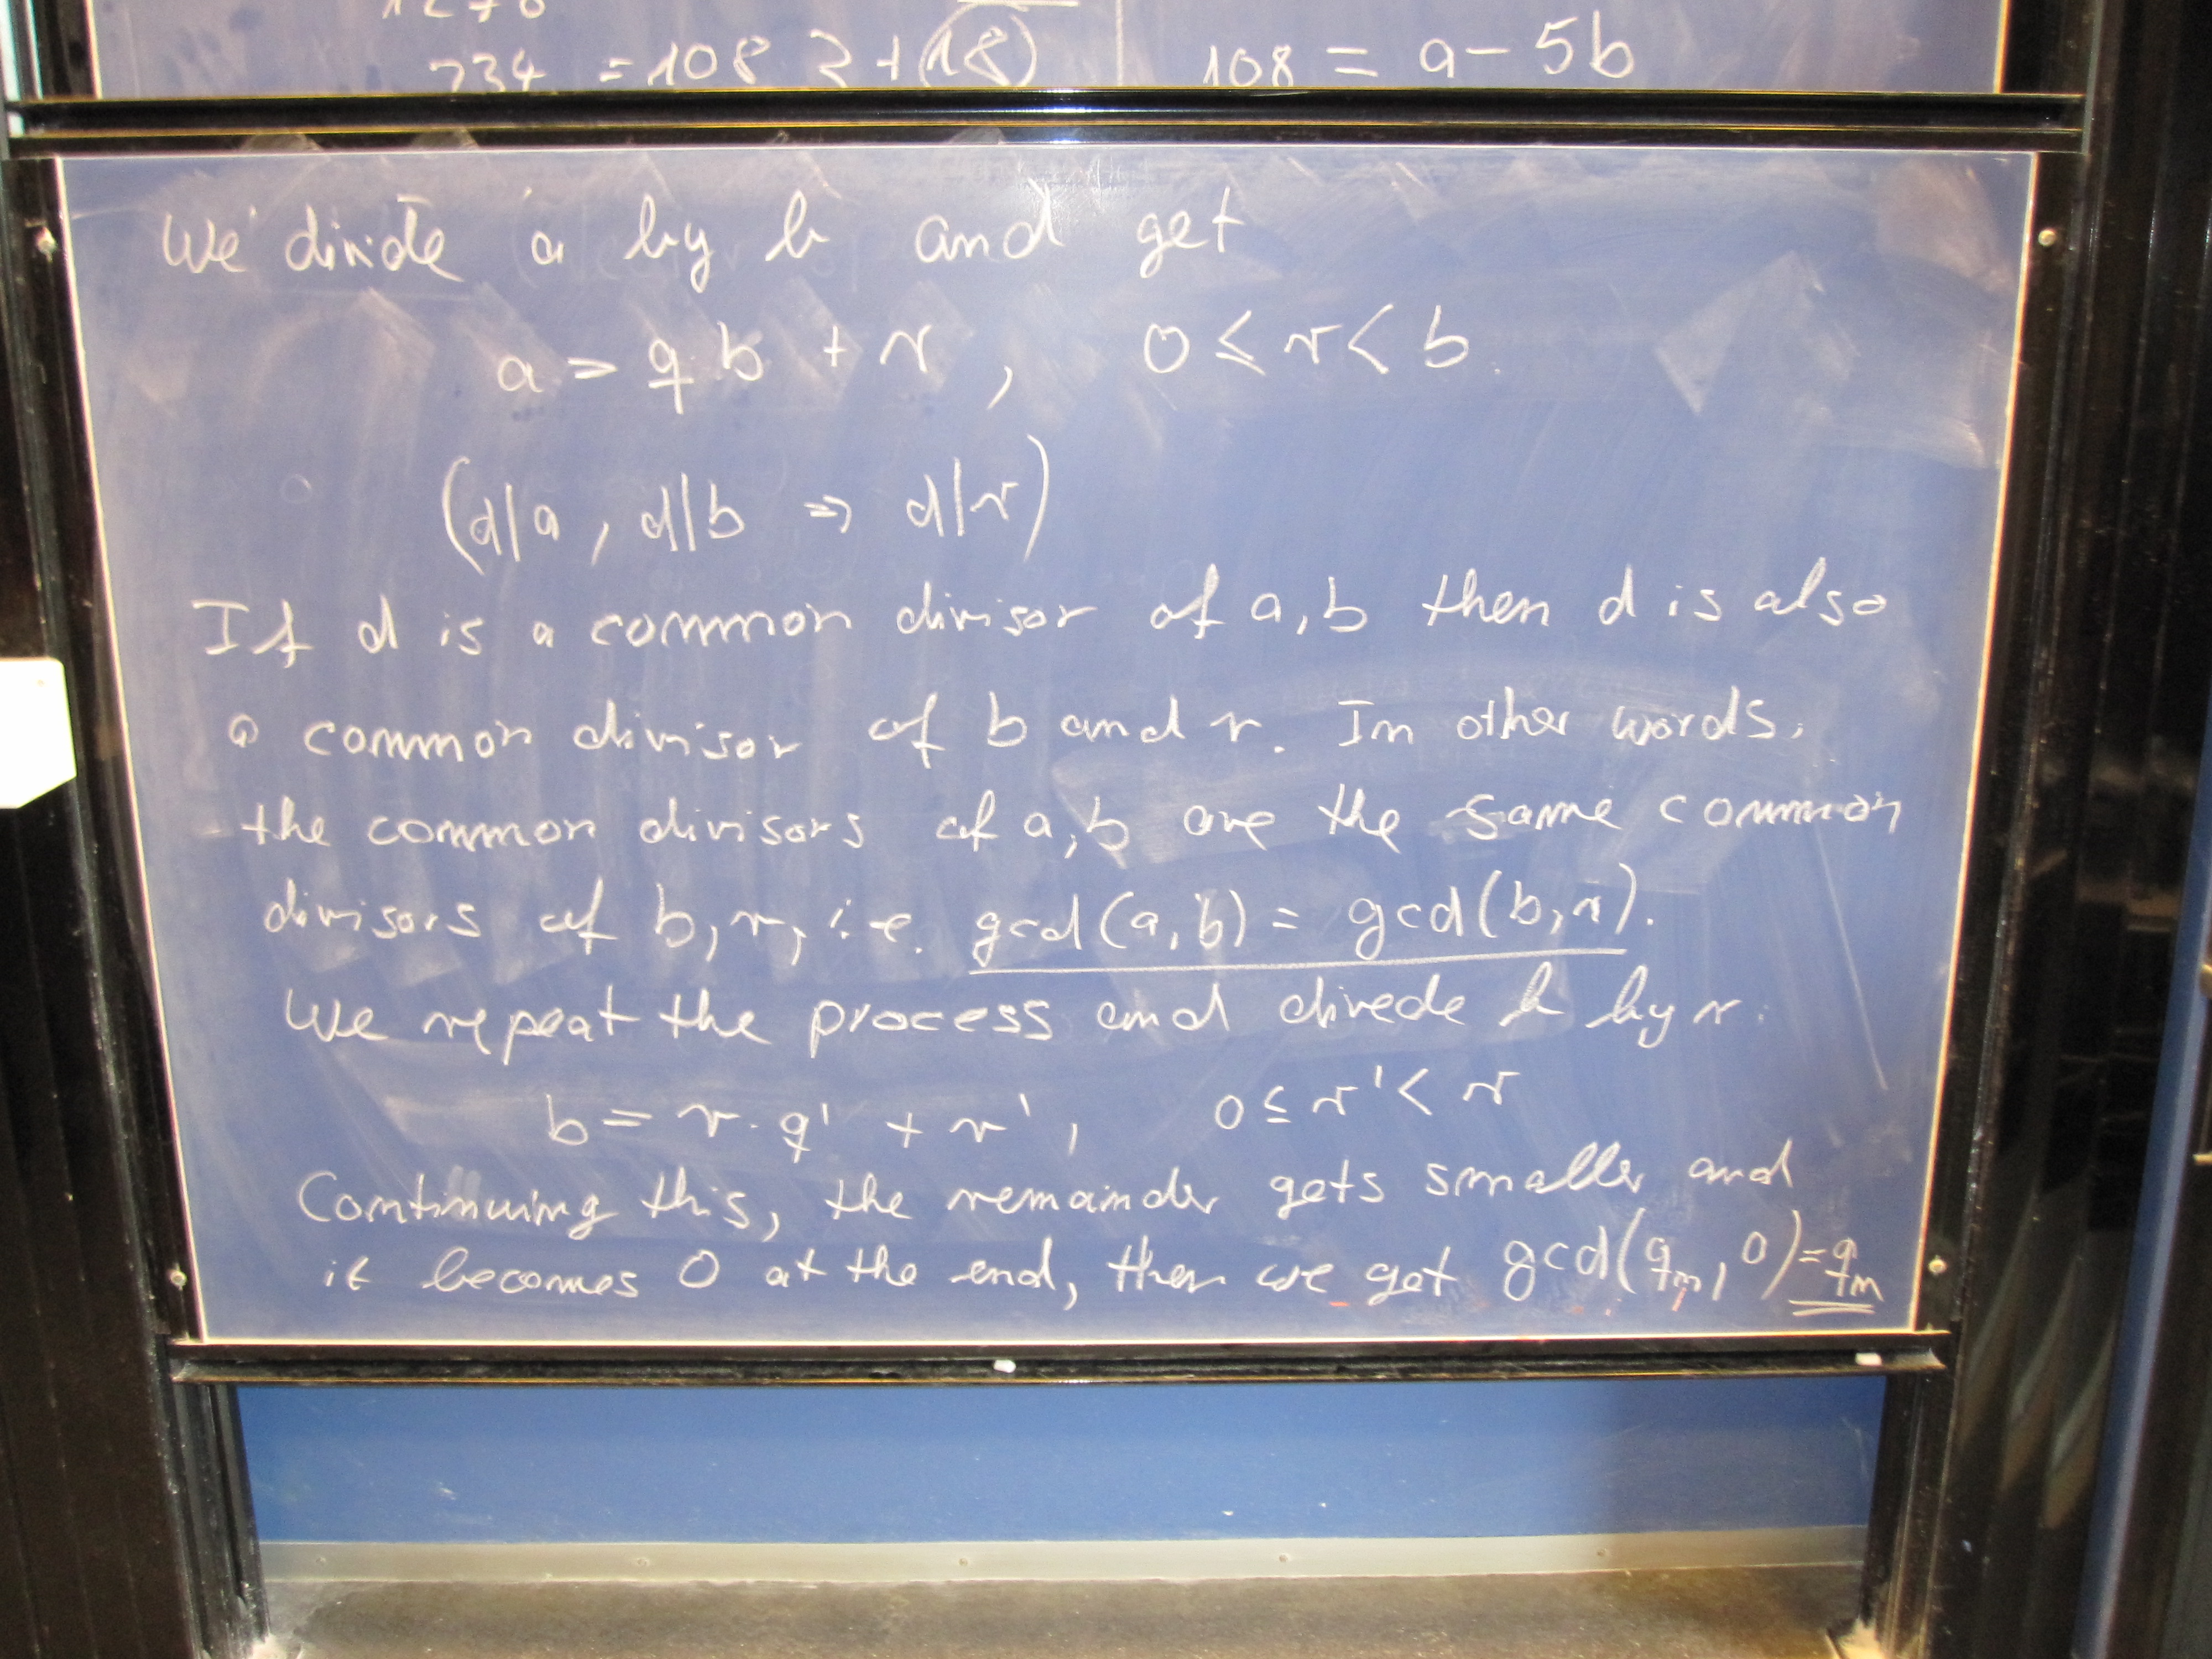 234 = 108 · 2 + 18
108 = a - 5b
We divide a by b and get
a = q·b + r, 0 ≤ r < b.
(d|a, d|b ⇒ d|r)
If d is a common divisor of a,b then d is also
a common divisor of b and r. In other words,
the common divisors of a,b are the same common
divisors of b,r, i.e. gcd(a,b) = gcd(b,r).
We repeat the process and divede b by r.
b = r·q' + r', 0 ≤ r' < r
Continuing this, the remainder gets smaller and
it becomes 0 at the end, then we get gcd(qₘ, 0) = qₘ